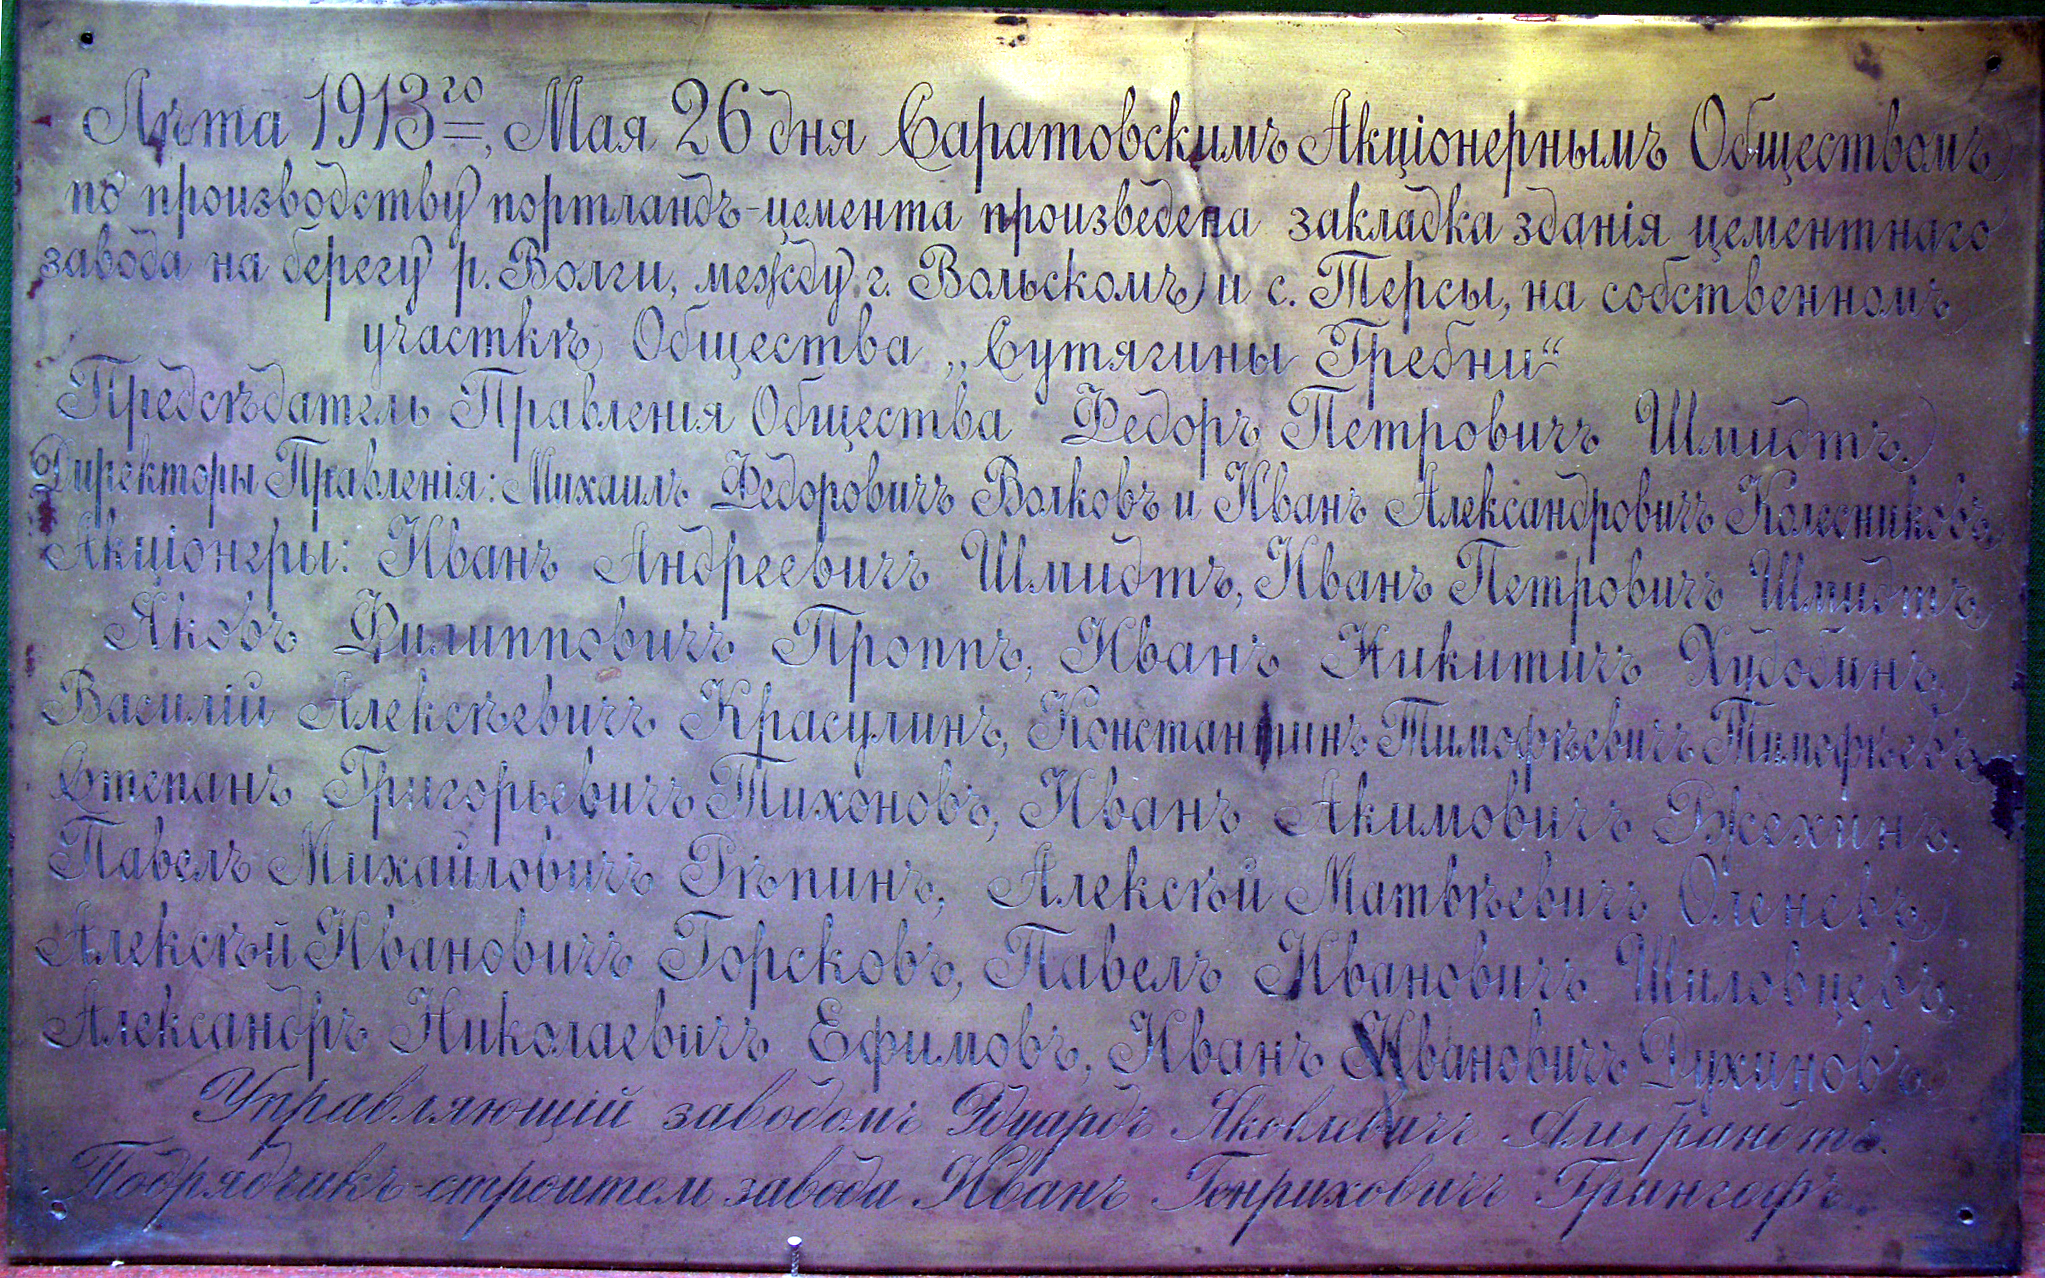 Лѣта 1913го, Мая 26 дня Саратовскимъ Акціонернымъ Обществомъ
по производству портландъ-цемента произведена закладка зданія цементнаго
завода на берегу р. Волги, между г. Вольскомъ и с. Терсы, на собственномъ
участкѣ Общества „Сутягины Гребни“
Предсѣдатель Правленія Общества Федоръ Петровичъ Шмидтъ.
Директоры Правленія: Михаилъ Федоровичъ Волковъ и Иванъ Александровичъ Колесниковъ,
Акціонеры: Иванъ Андреевичъ Шмидтъ, Иванъ Петровичъ Шмидтъ,
Яковъ Филипповичъ Проппъ, Иванъ Никитичъ Худобинъ,
Василій Алексѣевичъ Красулинъ, Константинъ Тимофѣевичъ Тимофѣевъ,
Степанъ Григорьевичъ Тихоновъ, Иванъ Акимовичъ Ржехинъ,
Павелъ Михайловичъ Рѣпинъ, Алексѣй Матвѣевичъ Оленевъ,
Алексѣй Ивановичъ Горсковъ, Павелъ Ивановичъ Шиловцевъ,
Александръ Николаевичъ Ефимовъ, Иванъ Ивановичъ Духиновъ.
Управляющій заводомъ Эдуардъ Яковлевичъ Алибрандтъ.
Подрядчикъ-строитель завода Иванъ Генриховичъ Грингофъ.